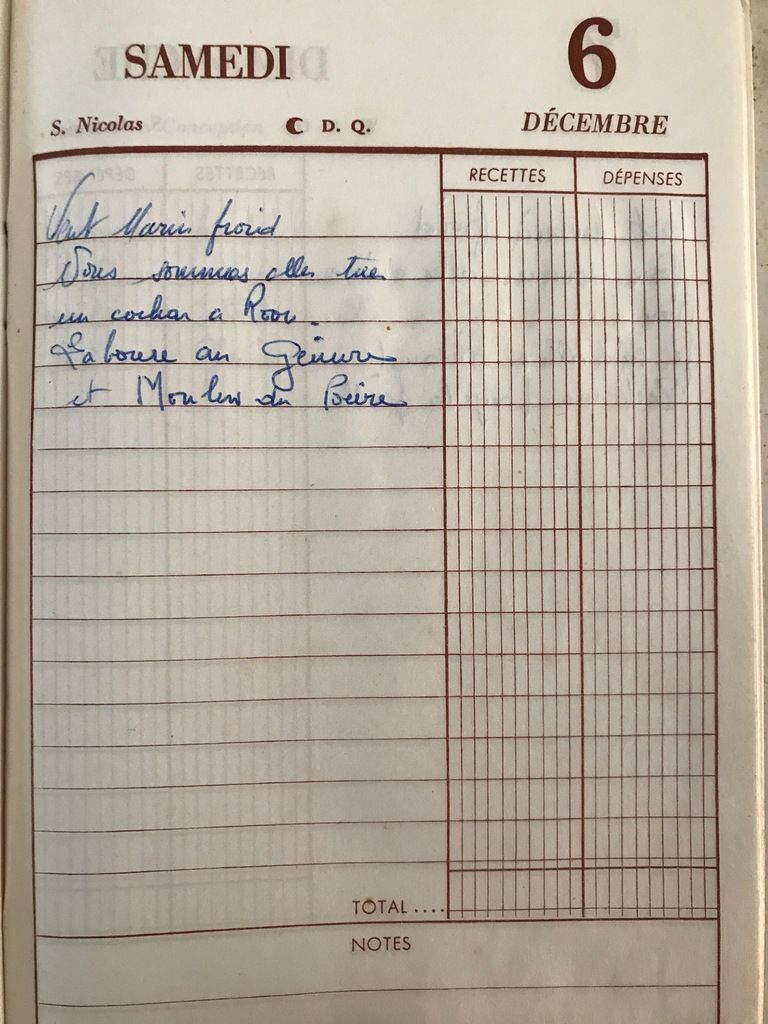 SAMEDI 6
S. Nicolas D. Q. DÉCEMBRE
RECETTES DÉPENSES
Vent Marin froid
Nous sommes alles tuer
un cochon a
Laboure au Genievre
et Moulin du
TOTAL ....
NOTES